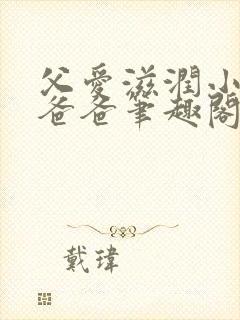 父愛滋潤小
爸爸筆趣閣
戴瑋